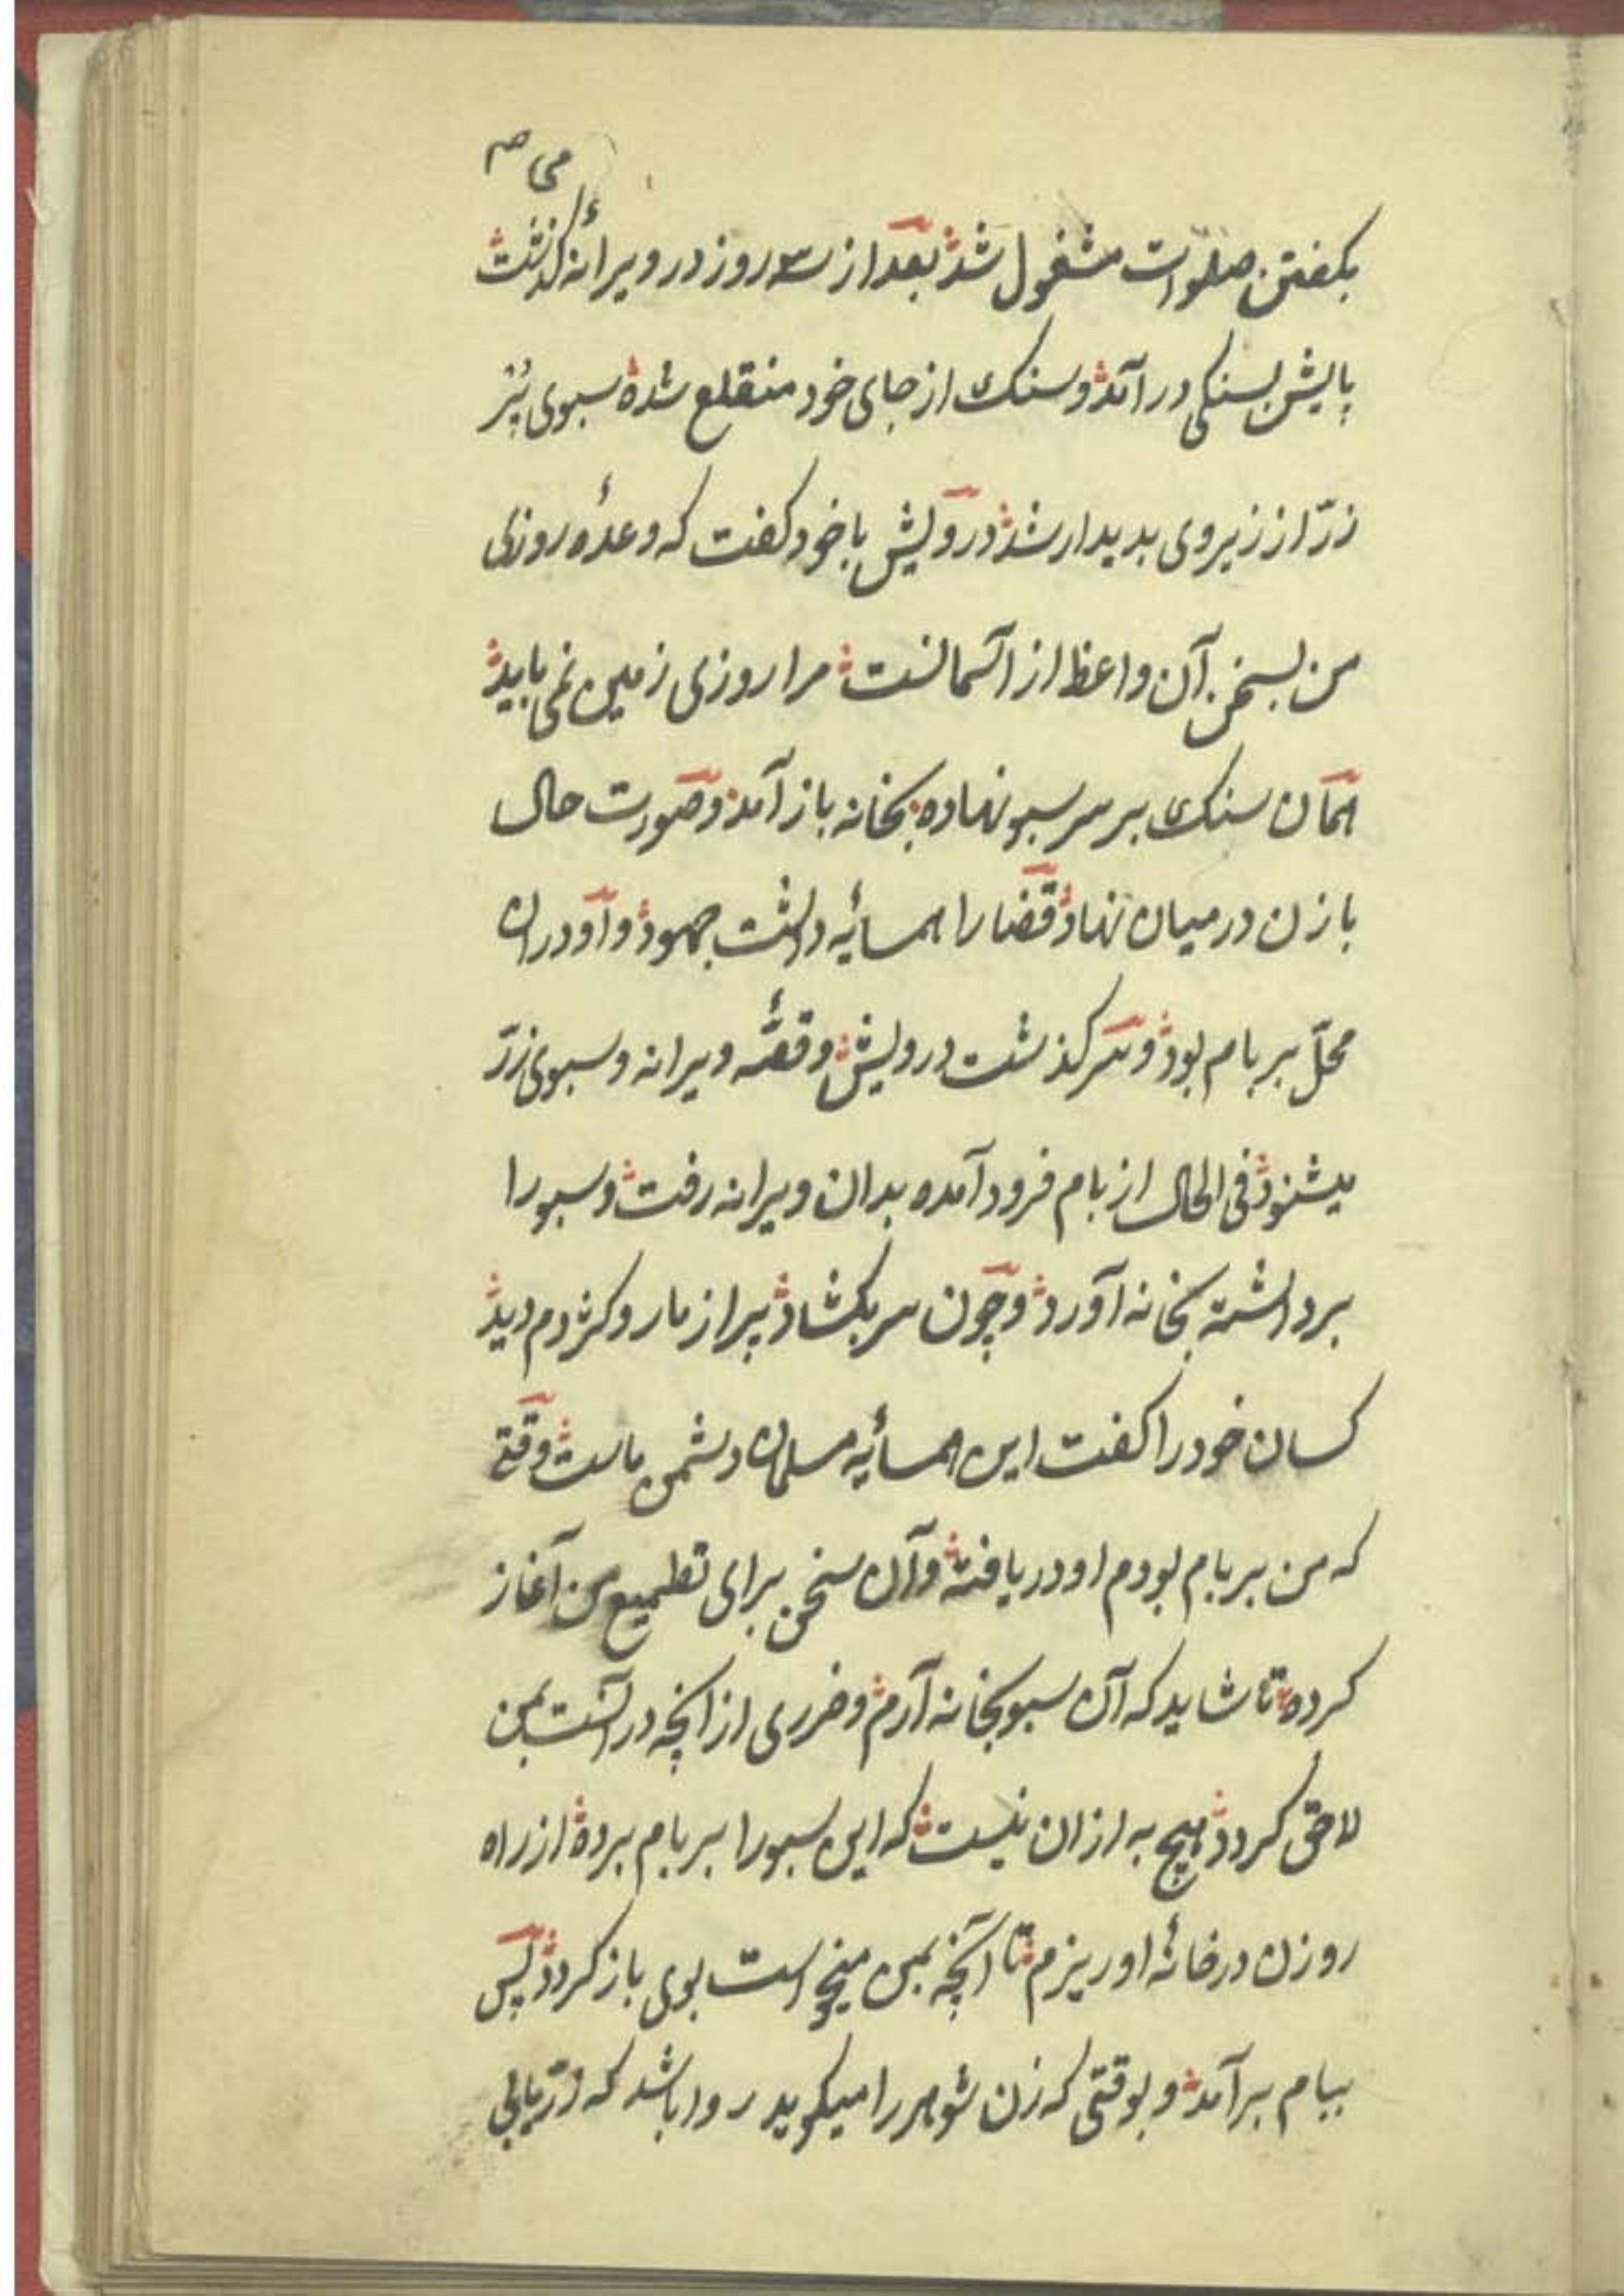 می صح
بکفتن صلوات مشغول شد بعد از سه روز در ویرانهٔ کذشت
پایش بسنکی درآمد و سنک از جای خود منقلع شده سبوی پُر
زرّ از زیر وی بدیدار شد درویش با خود کفت که وعدهٔ روزی
من بسخن آن واعظ از آسمانست مرا روزی زمین نمی باید
همان سنک بر سر سبو نهاده بخانه باز آمد و صورت حال
با زن در میان نهاد قضا را همسایهٔ داشت جهود و او دران
محلّ بر بام بود و سرکذشت درویش و قصّهٔ ویرانه و سبوی زرّ
میشنود فی الحال از بام فرود آمده بدان ویرانه رفت و سبو را
برداشته بخانه آورد و چون سر بکشاد پر از مار و کژدم دید
کسان خود را کفت این همسایهٔ مسلمان دشمن ماست وقتی
که من بر بام بودم او دریافته و آن سخن برای تطمیع من آغاز
کرده تا شاید که آن سبو بخانه آرم و ضرری از آنچه در آنست بمن
لاحق کردد هیچ به ازان نیست که این سبو را بر بام برده از راه
روزن در خانهٔ او ریزم تا آنچه بمن میخواست بوی باز کردد پس
ببام برآمد و بوقتی که زن شوهر را میکوید روا باشد که زرّ یابی